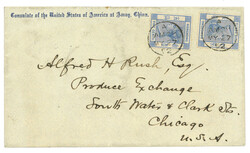 Consulate of the United States of America at Amoy, China.
Alfred H Rush, Esq.
Produce Exchange
South Water & Clark Sts.
Chicago
U.S.A.